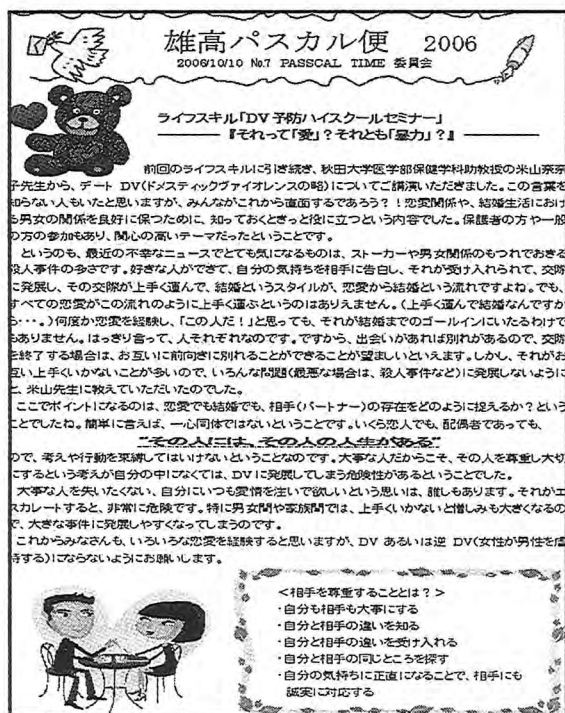 雄高パスカル便 2006
2006/10/10 No.7 PASSCAL TIME 委員会
ライフスキル「DV予防ハイスクールセミナー」
『それって「愛」?それとも「暴力」?』
前回のライフスキルに引き続き、秋田大学医学部保健学科助教授の米山奈奈
子先生から、デート DV(ドメスティックヴァイオレンスの略)についてご講演いただきました。この言葉を
知らない人もいたと思いますが、みんながこれから直面するであろう?!恋愛関係や、結婚生活におけ
る男女の関係を良好に保つために、知っておくときっと役に立つという内容でした。保護者の方や一般
の方の参加もあり、関心の高いテーマだったということです。
というのも、最近の不幸なニュースでとても気になるものは、ストーカーや男女関係のもつれでおきる
殺人事件の多さです。好きな人ができて、自分の気持ちを相手に告白し、それが受け入れられて、交際
に発展し、その交際が上手く運んで、結婚というスタイルが、恋愛から結婚という流れですよね。でも、
すべての恋愛がこの流れのように上手く運ぶというのはありえません。(上手く運んで結婚なんですか
ら・・・。)何度か恋愛を経験し、「この人だ!」と思っても、それが結婚までのゴールインにいたるわけで
もありません。はっきり言って、人それぞれなのです。ですから、出会いがあれば別れがあるので、交際
を終了する場合は、お互いに前向きに別れることができることが望ましいといえます。しかし、それがお
互い上手くいかないことが多いので、いろんな問題(最悪な場合は、殺人事件など)に発展しないように
と、米山先生に教えていただいたのでした。
ここでポイントになるのは、恋愛でも結婚でも、相手(パートナー)の存在をどのように捉えるか?という
ことでしたね。簡単に言えば、一心同体ではないということです。いくら恋人でも、配偶者であっても、
"その人には、その人の人生がある"
ので、考えや行動を束縛してはいけないということなのです。大事な人だからこそ、その人を尊重し大切
にするという考えが自分の中になくては、DVに発展してしまう危険性があるということでした。
大事な人を失いたくない、自分にいつも愛情を注いで欲しいという思いは、誰しもあります。それがエ
スカレートすると、非常に危険です。特に男女間や家族間では、上手くいかないと憎しみも大きくなるの
で、大きな事件に発展しやすくなってしまうのです。
これからみなさんも、いろいろな恋愛を経験すると思いますが、DV あるいは逆 DV(女性が男性を虐
待する)にならないようにお願いします。
<相手を尊重することとは?>
・自分も相手も大事にする
・自分と相手の違いを知る
・自分と相手の違いを受け入れる
・自分と相手の同じところを探す
・自分の気持ちに正直になることで、相手にも
誠実に対応する